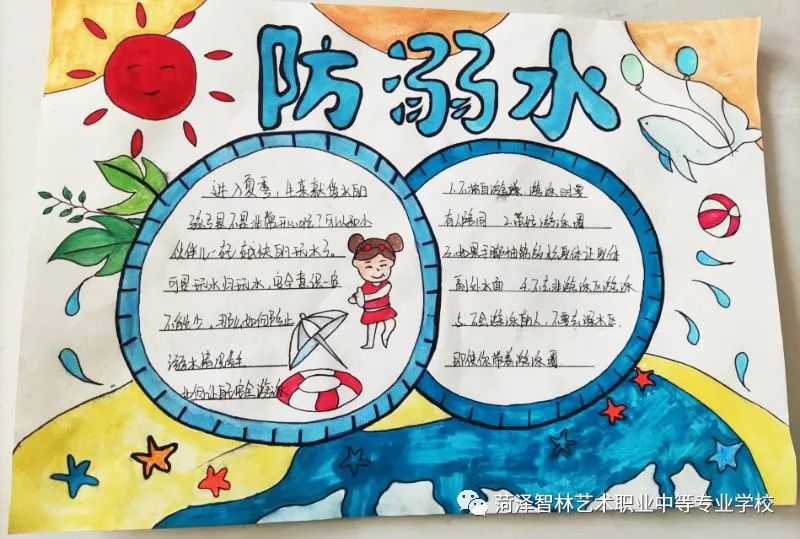 防溺水
进入夏季，生来就贪水的
孩子是不是非常开心呢？可以和小
伙伴儿一起愉快的玩水了。
可是玩水归玩水，安全意识一点
不能少，那么如何防止
溺水情况发生
如何让孩子安全游泳
1.不独自游泳，游泳时要
有人陪同 2.带好游泳圈
3.如果手脚抽筋放松肢体让肢体
到处水面 4.不去非游泳区游泳
5.不会游泳的人，不要去深水区
即使你带着游泳圈
菏泽智林艺术职业中等专业学校